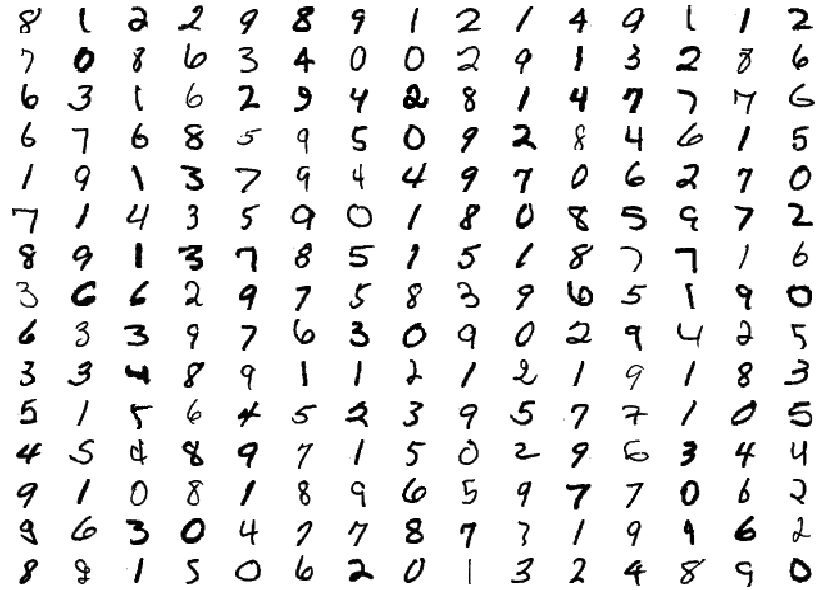 8 1 2 2 9 8 9 1 2 1 4 9 1 1 2
7 0 8 6 3 4 0 0 2 9 1 3 2 8 6
6 3 1 6 2 9 4 2 8 1 4 7 7 7 6
6 7 6 8 5 9 5 0 9 2 8 4 6 1 5
1 9 1 3 7 9 4 4 9 7 0 6 2 7 0
7 1 4 3 5 9 0 1 8 0 8 5 9 7 2
8 9 1 3 7 8 5 1 5 1 8 7 7 1 6
3 6 6 2 9 7 5 8 3 9 6 5 1 9 0
6 3 3 9 7 6 3 0 9 0 2 9 4 2 5
3 3 4 8 9 1 1 2 1 2 1 9 1 8 3
5 1 5 6 4 5 2 3 9 5 7 7 1 0 5
4 5 4 8 9 7 1 5 0 2 9 6 3 4 4
9 1 0 8 1 8 9 6 5 9 7 7 0 6 2
9 6 3 0 4 7 7 8 7 3 1 9 9 6 2
8 9 1 5 0 6 2 0 1 3 2 4 8 9 0